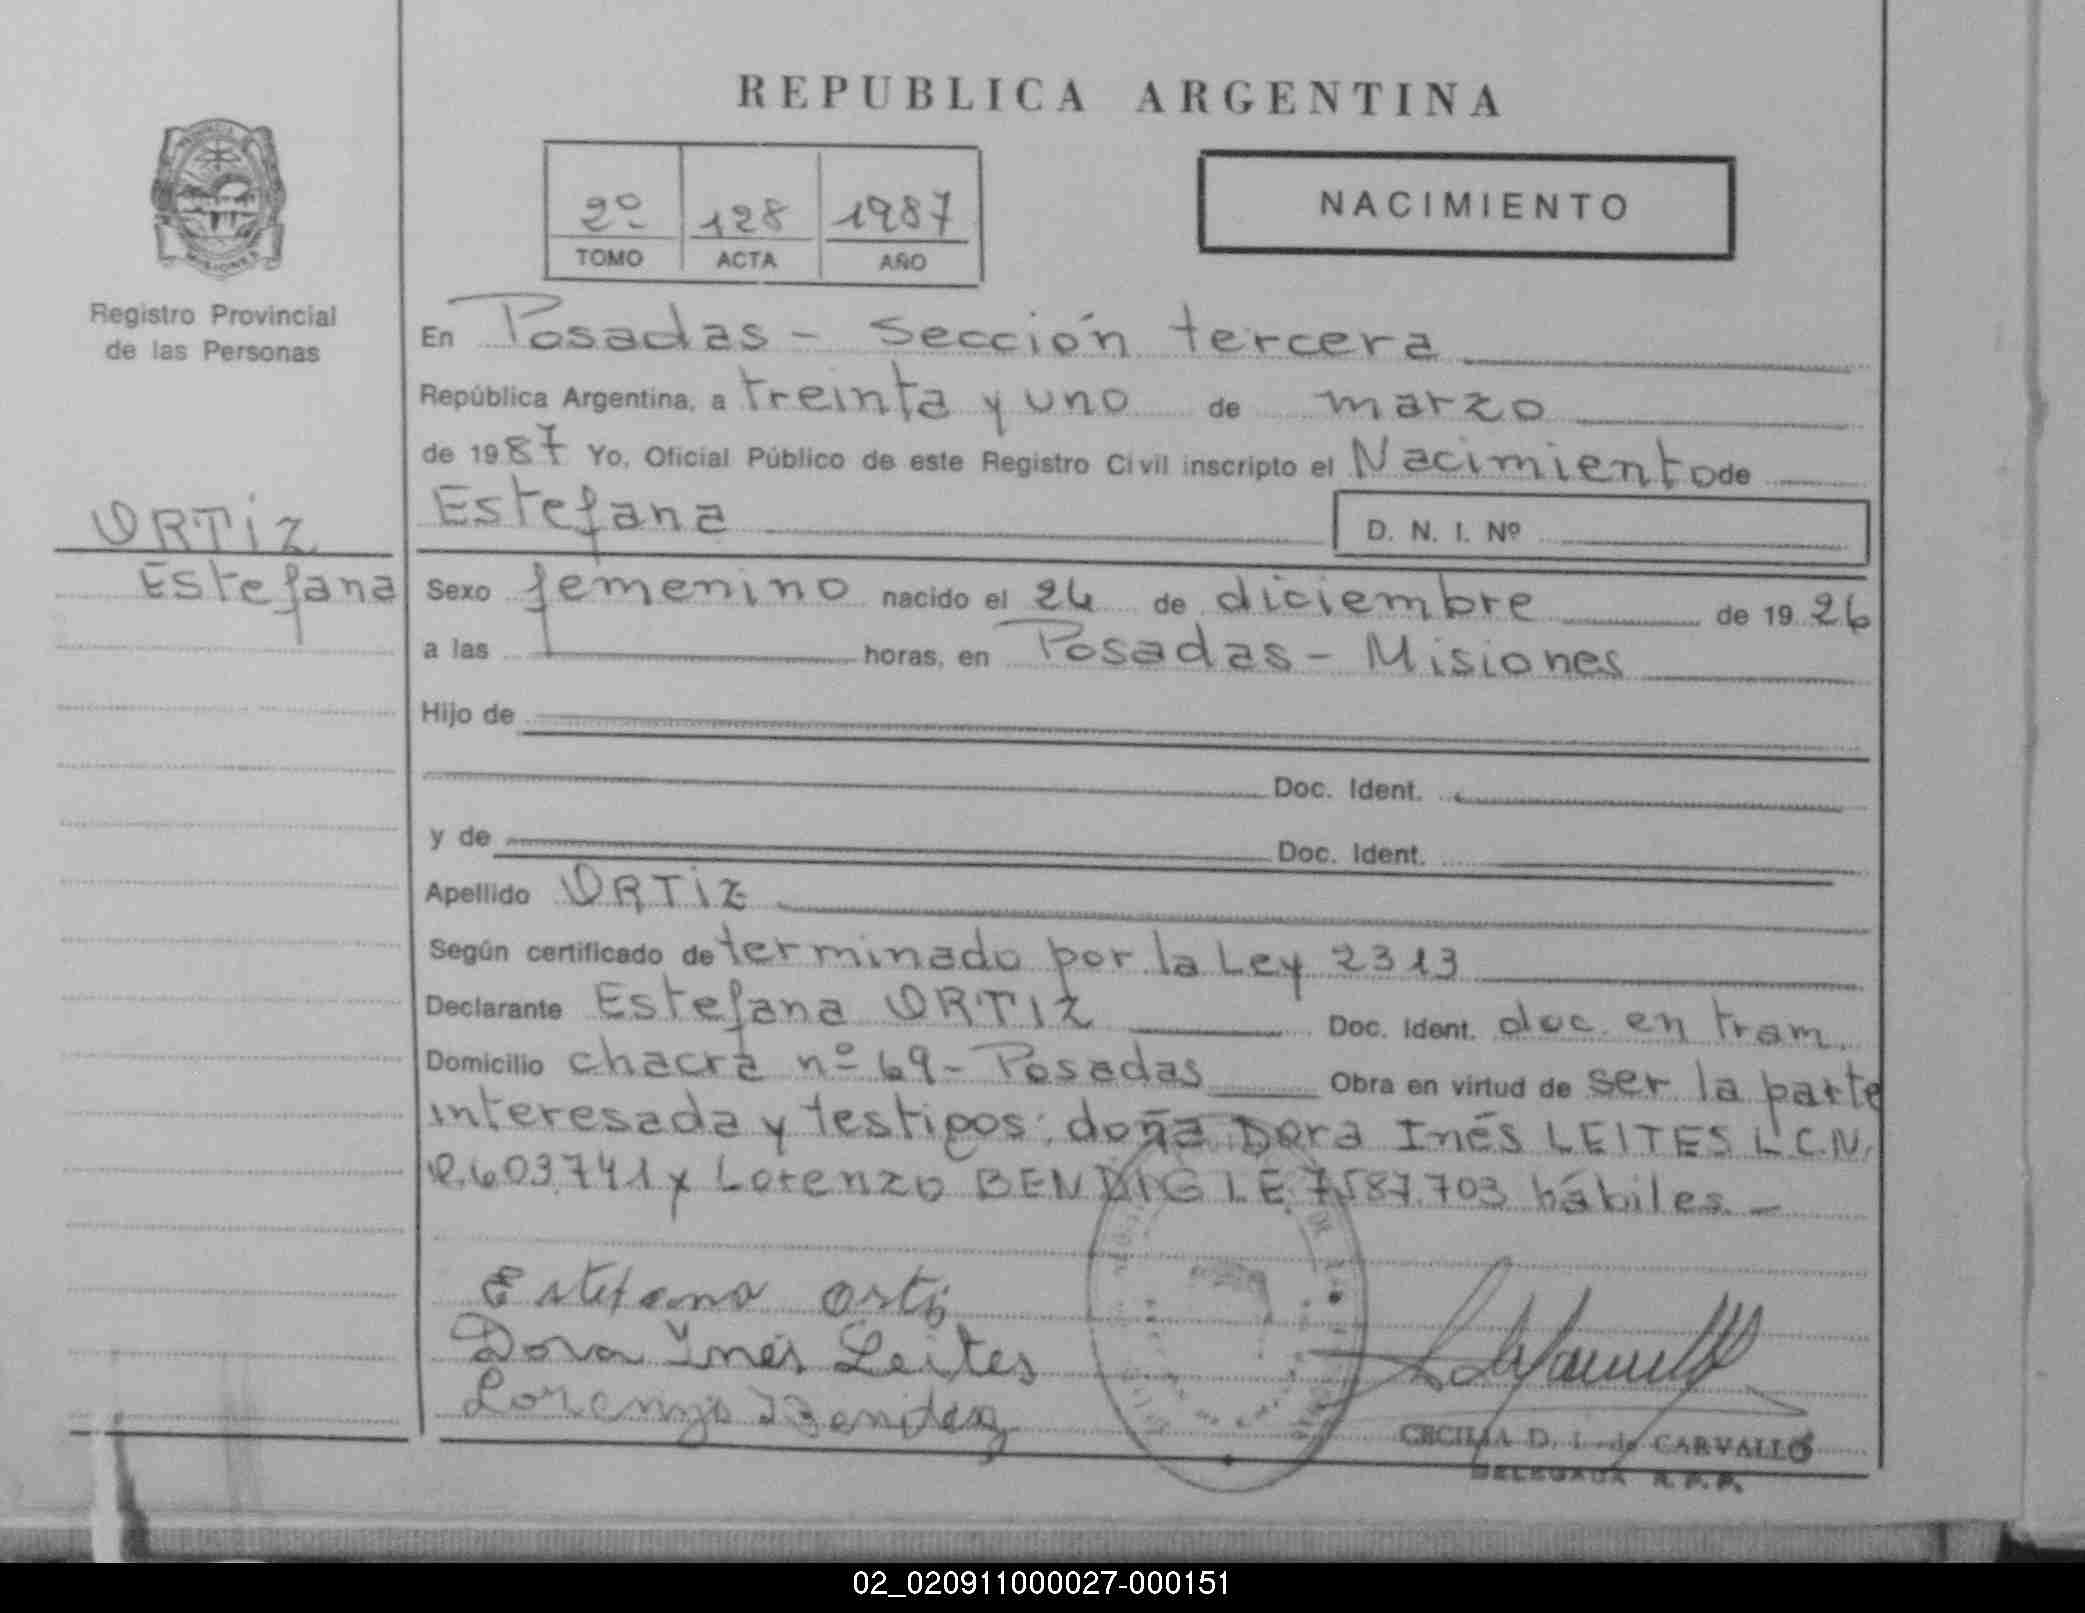 REPUBLICA ARGENTINA
2º 128 1987
TOMO ACTA AÑO
NACIMIENTO
MISIONES
Registro Provincial
de las Personas
En Posadas - Sección tercera
República Argentina, a treinta y uno de marzo
de 1987 Yo, Oficial Público de este Registro Civil inscripto el Nacimiento de
Estefana D. N. I. Nº
ORTIZ
Estefana
Sexo femenino nacido el 24 de diciembre de 1926
a las horas, en Posadas - Misiones
Hijo de
Doc. Ident.
y de Doc. Ident.
Apellido ORTIZ
Según certificado determinado por la Ley 2313
Declarante Estefana ORTIZ Doc. Ident. doc. en tram.
Domicilio chacra nº 69 - Posadas Obra en virtud de ser la parte
interesada y testigos: doña Dora Inés LEITES L.C.N.
2.603.741 y Lorenzo BENDIG L.E. 7.587.703 hábiles. -
Estefana Orti
Dora Inés Leites
Lorenzo
CECILIA D. de CARVALLO
DELEGADA R.P.P.
02_020911000027-000151